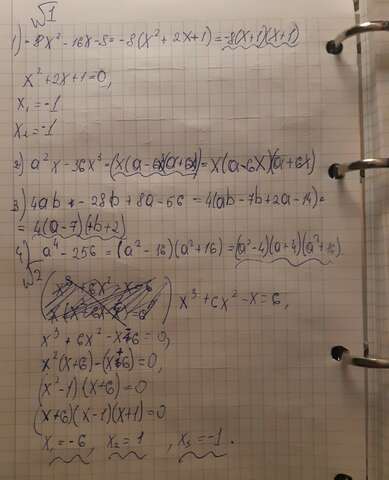 √1
1) -8x² - 16x - 8 = -8(x² + 2x + 1) = -8(x+1)(x+1)
x² + 2x + 1 = 0,
x₁ = -1
x₂ = -1
2) a²x - 36x³ = (x(a-6x)(a+6x) = x(a-6x)(a+6x)
3) 4ab - 28b + 8a - 56 = 4(ab - 7b + 2a - 14) =
= 4(a-7)(b+2)
4) a⁴ - 256 = (a² - 16)(a² + 16) = (a-4)(a+4)(a²+16)
√2
x³ + 6x² - x = 6,
x³ + 6x² - x - 6 = 0,
x²(x+6) - (x+6) = 0,
(x²-1)(x+6) = 0
(x+6)(x-1)(x+1) = 0
x₁ = -6, x₂ = 1, x₃ = -1.